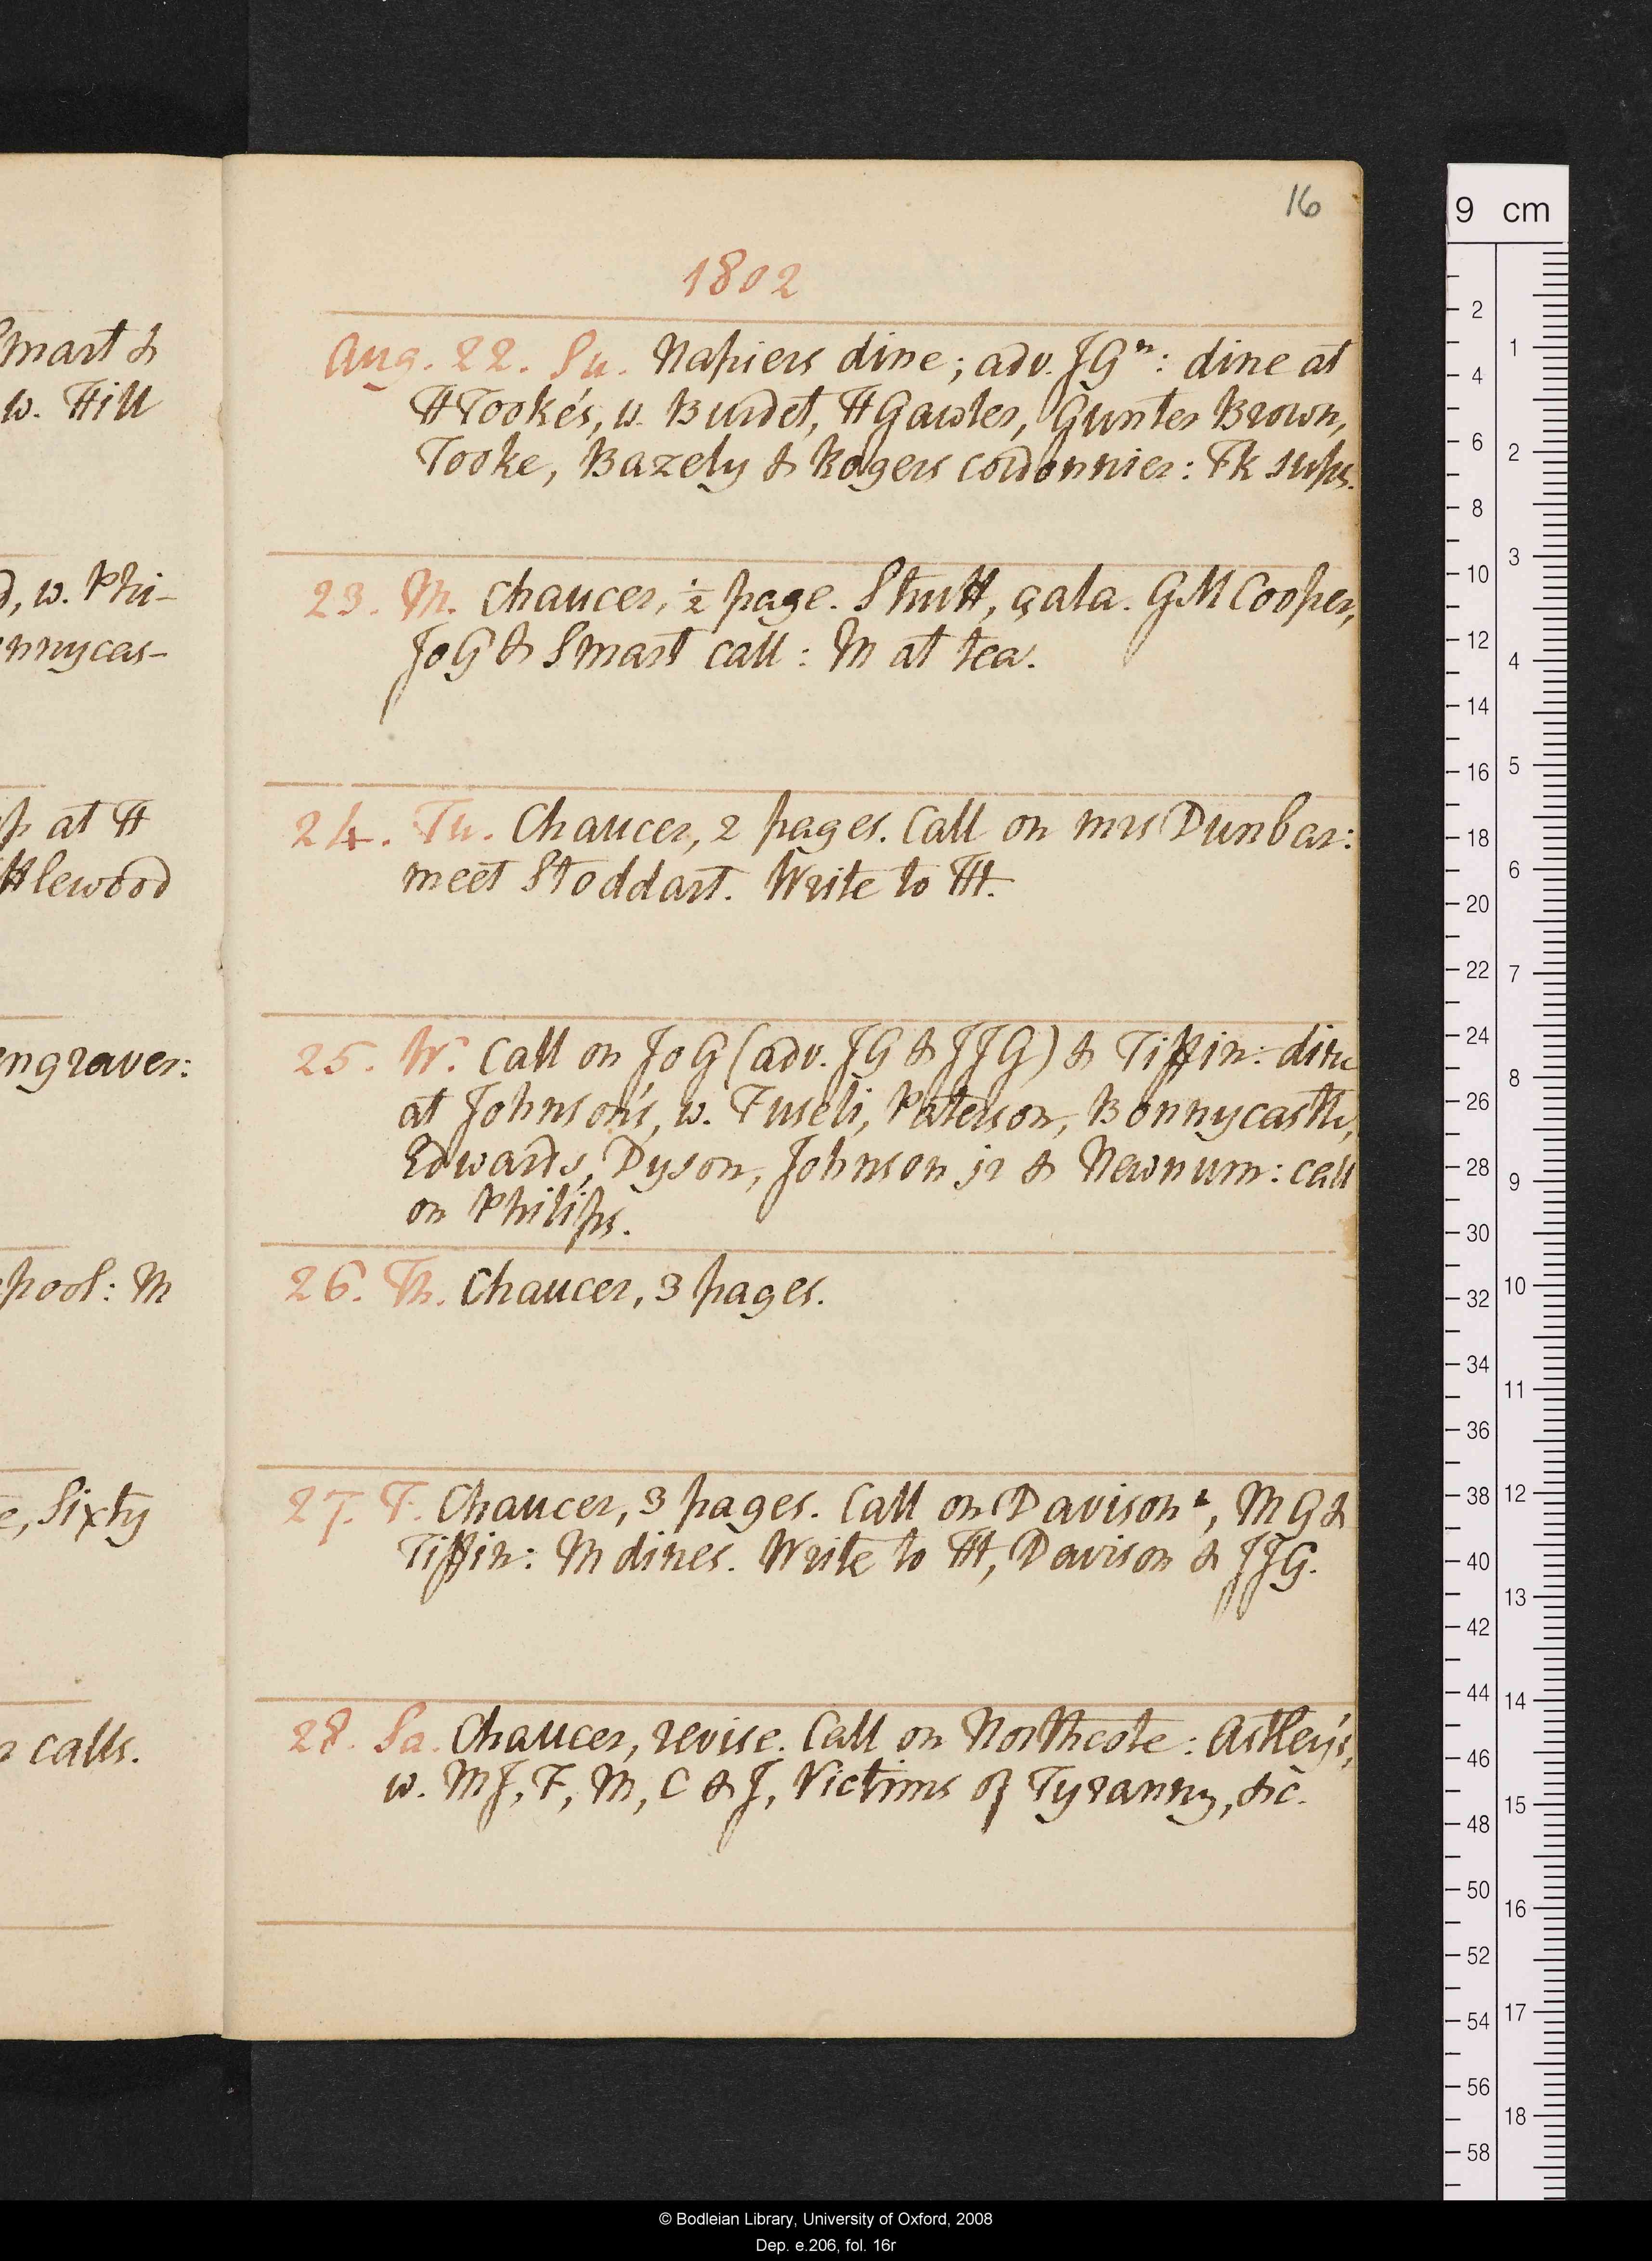 16
1802
Smart &
w. Hill
d, w. Phi-
nnycas-
p at H
ttlewood
engraver:
pool: M
e, Sixty
r calls.
Aug. 22. Su. Napiers dine; adv. JGⁿ: dine at
HTooke's, w. Burdet, HGawler, Gunter Brown,
Tooke, Bazely & Rogers cordonnier: Fk sups.
23. M. Chaucer, ½ page. Strutt, çala. GMCooper,
JoG & Smart call: M at tea.
24. Tu. Chaucer, 2 pages. Call on mrs Dunbar:
meet Stoddart. Write to TH.
25. W. Call on JoG (adv. JG & JJG) & Tiffin: dine
at Johnson's, w. Fuseli, Paterson, Bonnycastle,
Edwards, Dyson, Johnson jr & Newnum: call
on Philips.
26. Th. Chaucer, 3 pages.
27. F. Chaucer, 3 pages. Call on Davison, MG &
Tiffin: M dines. Write to TH, Davison & JJG.
28. Sa. Chaucer, revise. Call on Northcote: Astley's,
w. MJ, F, M, C & J, Victims of Tyranny, &c.
9 cm
2
4
6
8
10
12
14
16
18
20
22
24
26
28
30
32
34
36
38
40
42
44
46
48
50
52
54
56
58
1
2
3
4
5
6
7
8
9
10
11
12
13
14
15
16
17
18
© Bodleian Library, University of Oxford, 2008
Dep. e.206, fol. 16r